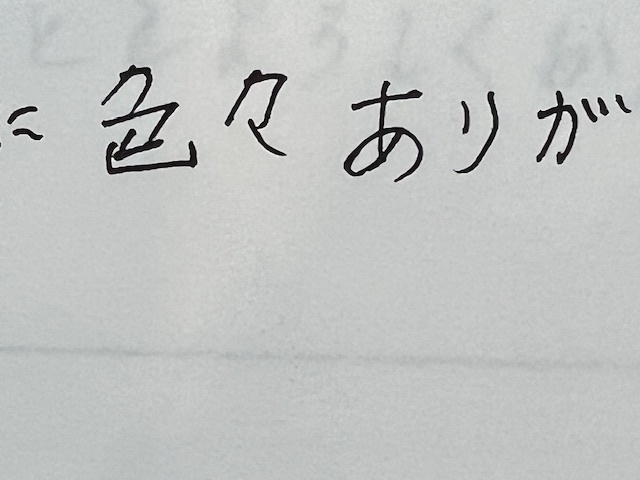 に色々ありが